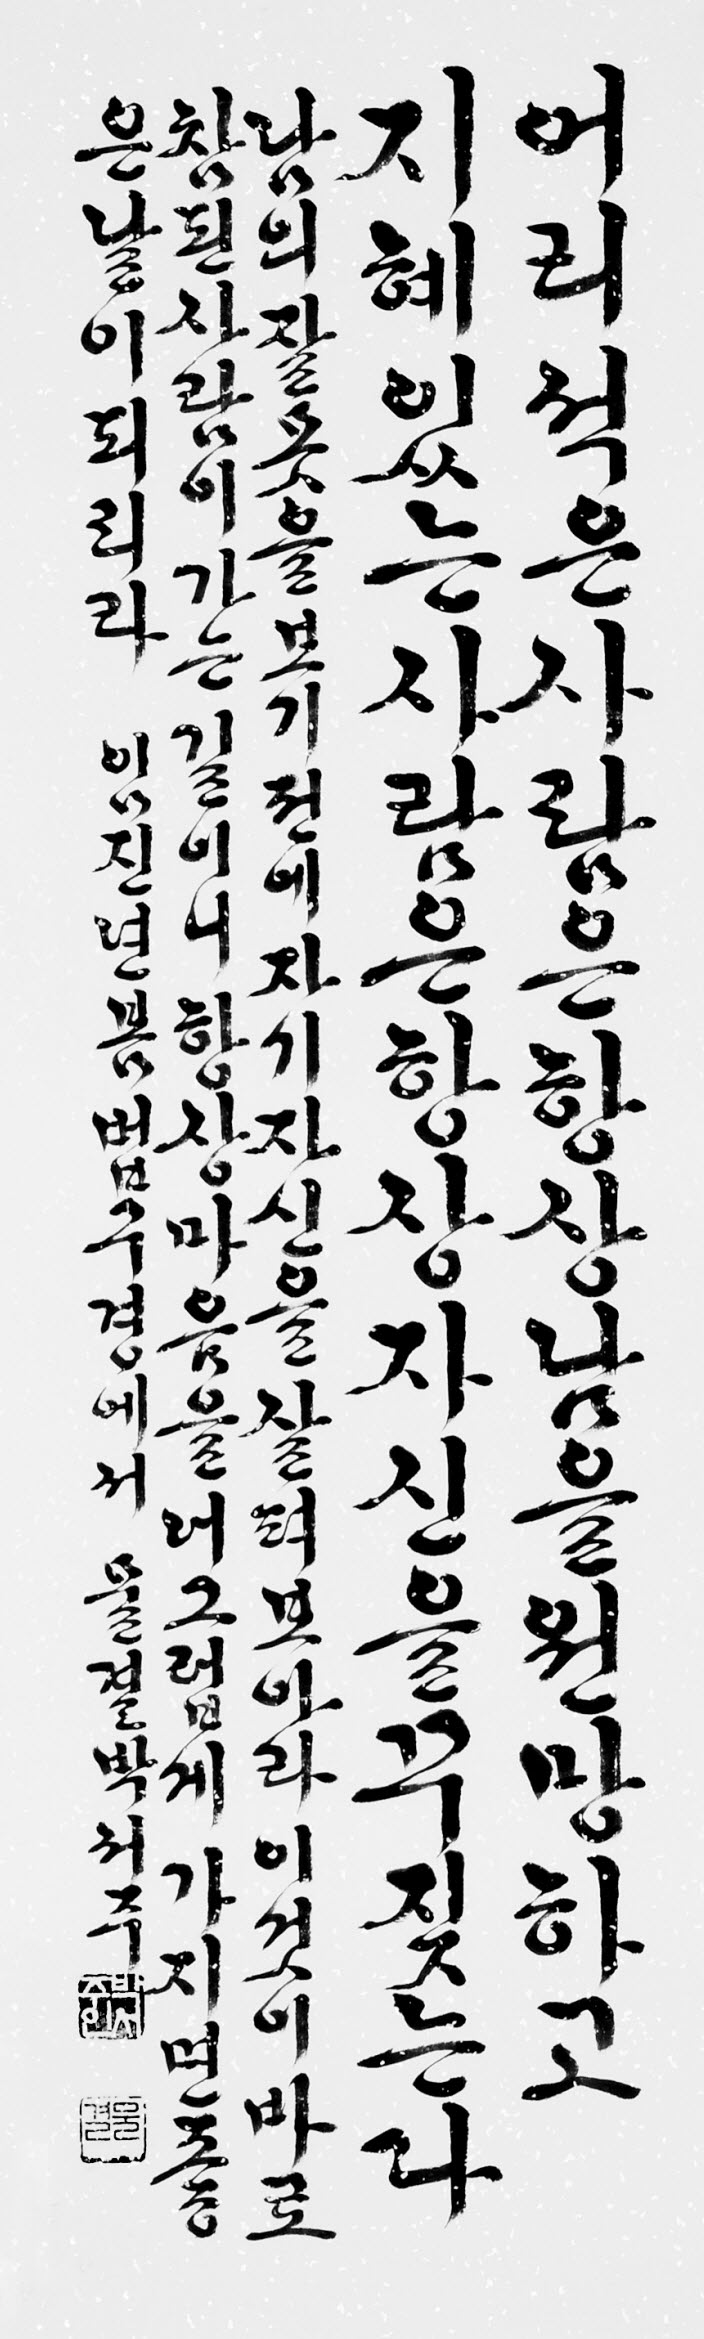 어리석은사람은항상남을원망하고
지혜있는사람은항상자신을꾸짖는다
남의잘못을보기전에자기자신을살펴보아라이것이바로
참된사람이가는길이니항상마음을너그럽게가지면좋
은날이되리라 임진년봄법구경에서 물결박서주
물결